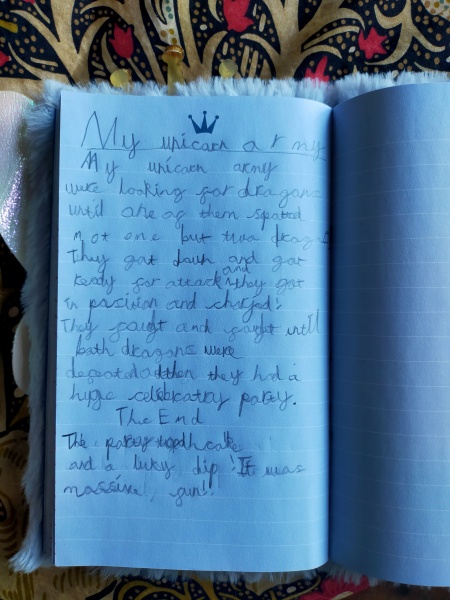 My unicarn army
My unicarn army
were looking for dragons
until one of them spotted
not one but two dragons
They got down and got
and
Ready for attack they got
in possision and charged!
They fought and fought until
both dragons were
defeated then they had a
huge celebratry party.
The End
The party had cake
and a lucky dip! It was
massive fun!!